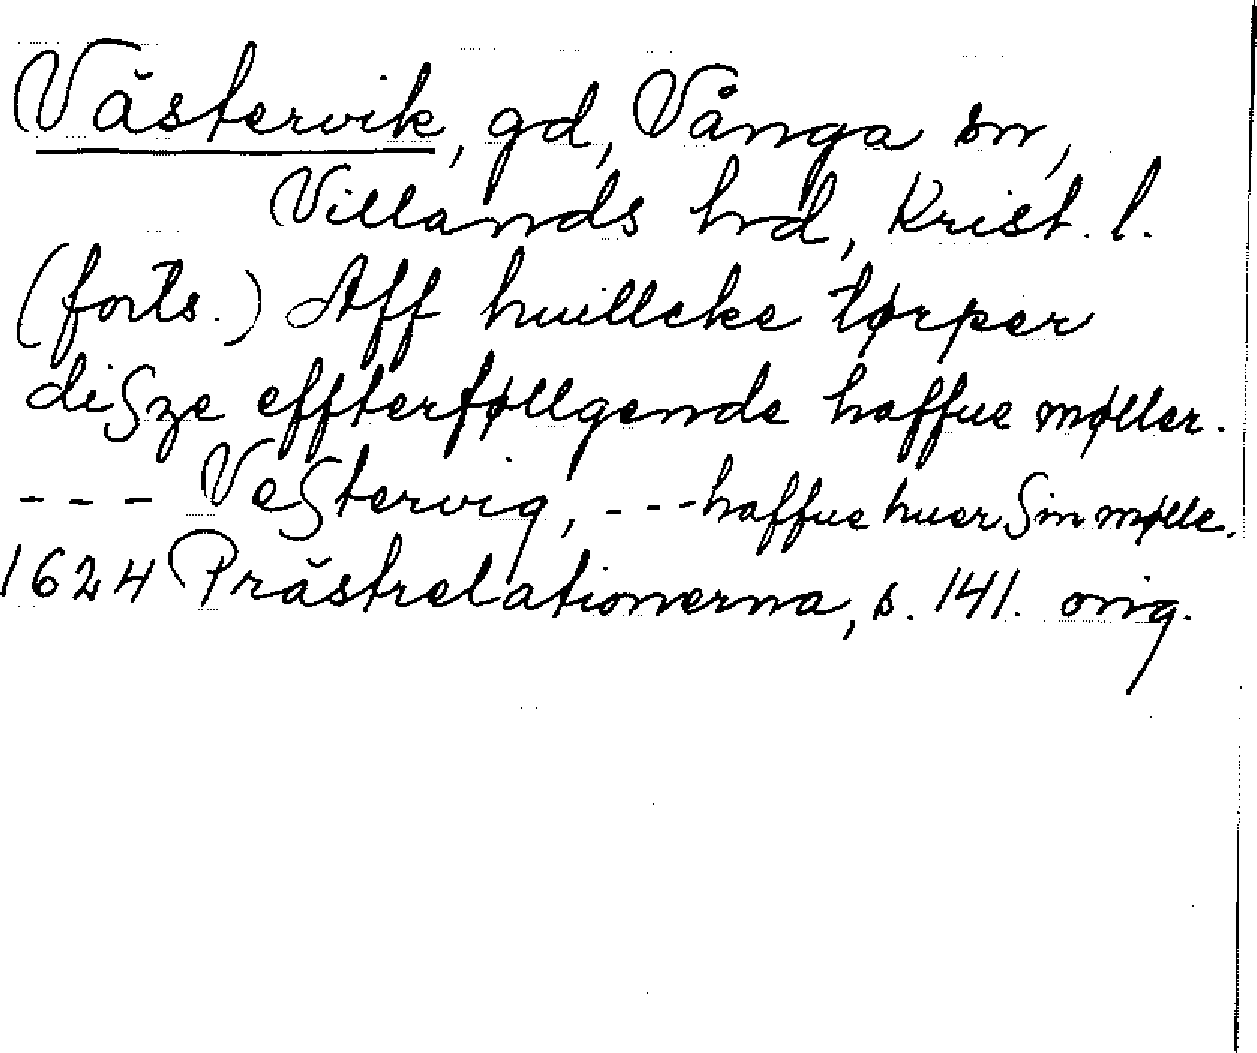 Västervik, gd, Vånga sn,
Villands hrd, Krist. l.
(forts.) Aff huillcke tørper
diſze effterføllgende haffue møller.
--- Veſtervig, ---haffue huer ſin mølle.
1624 Prästrelationerna, s. 141. orig.